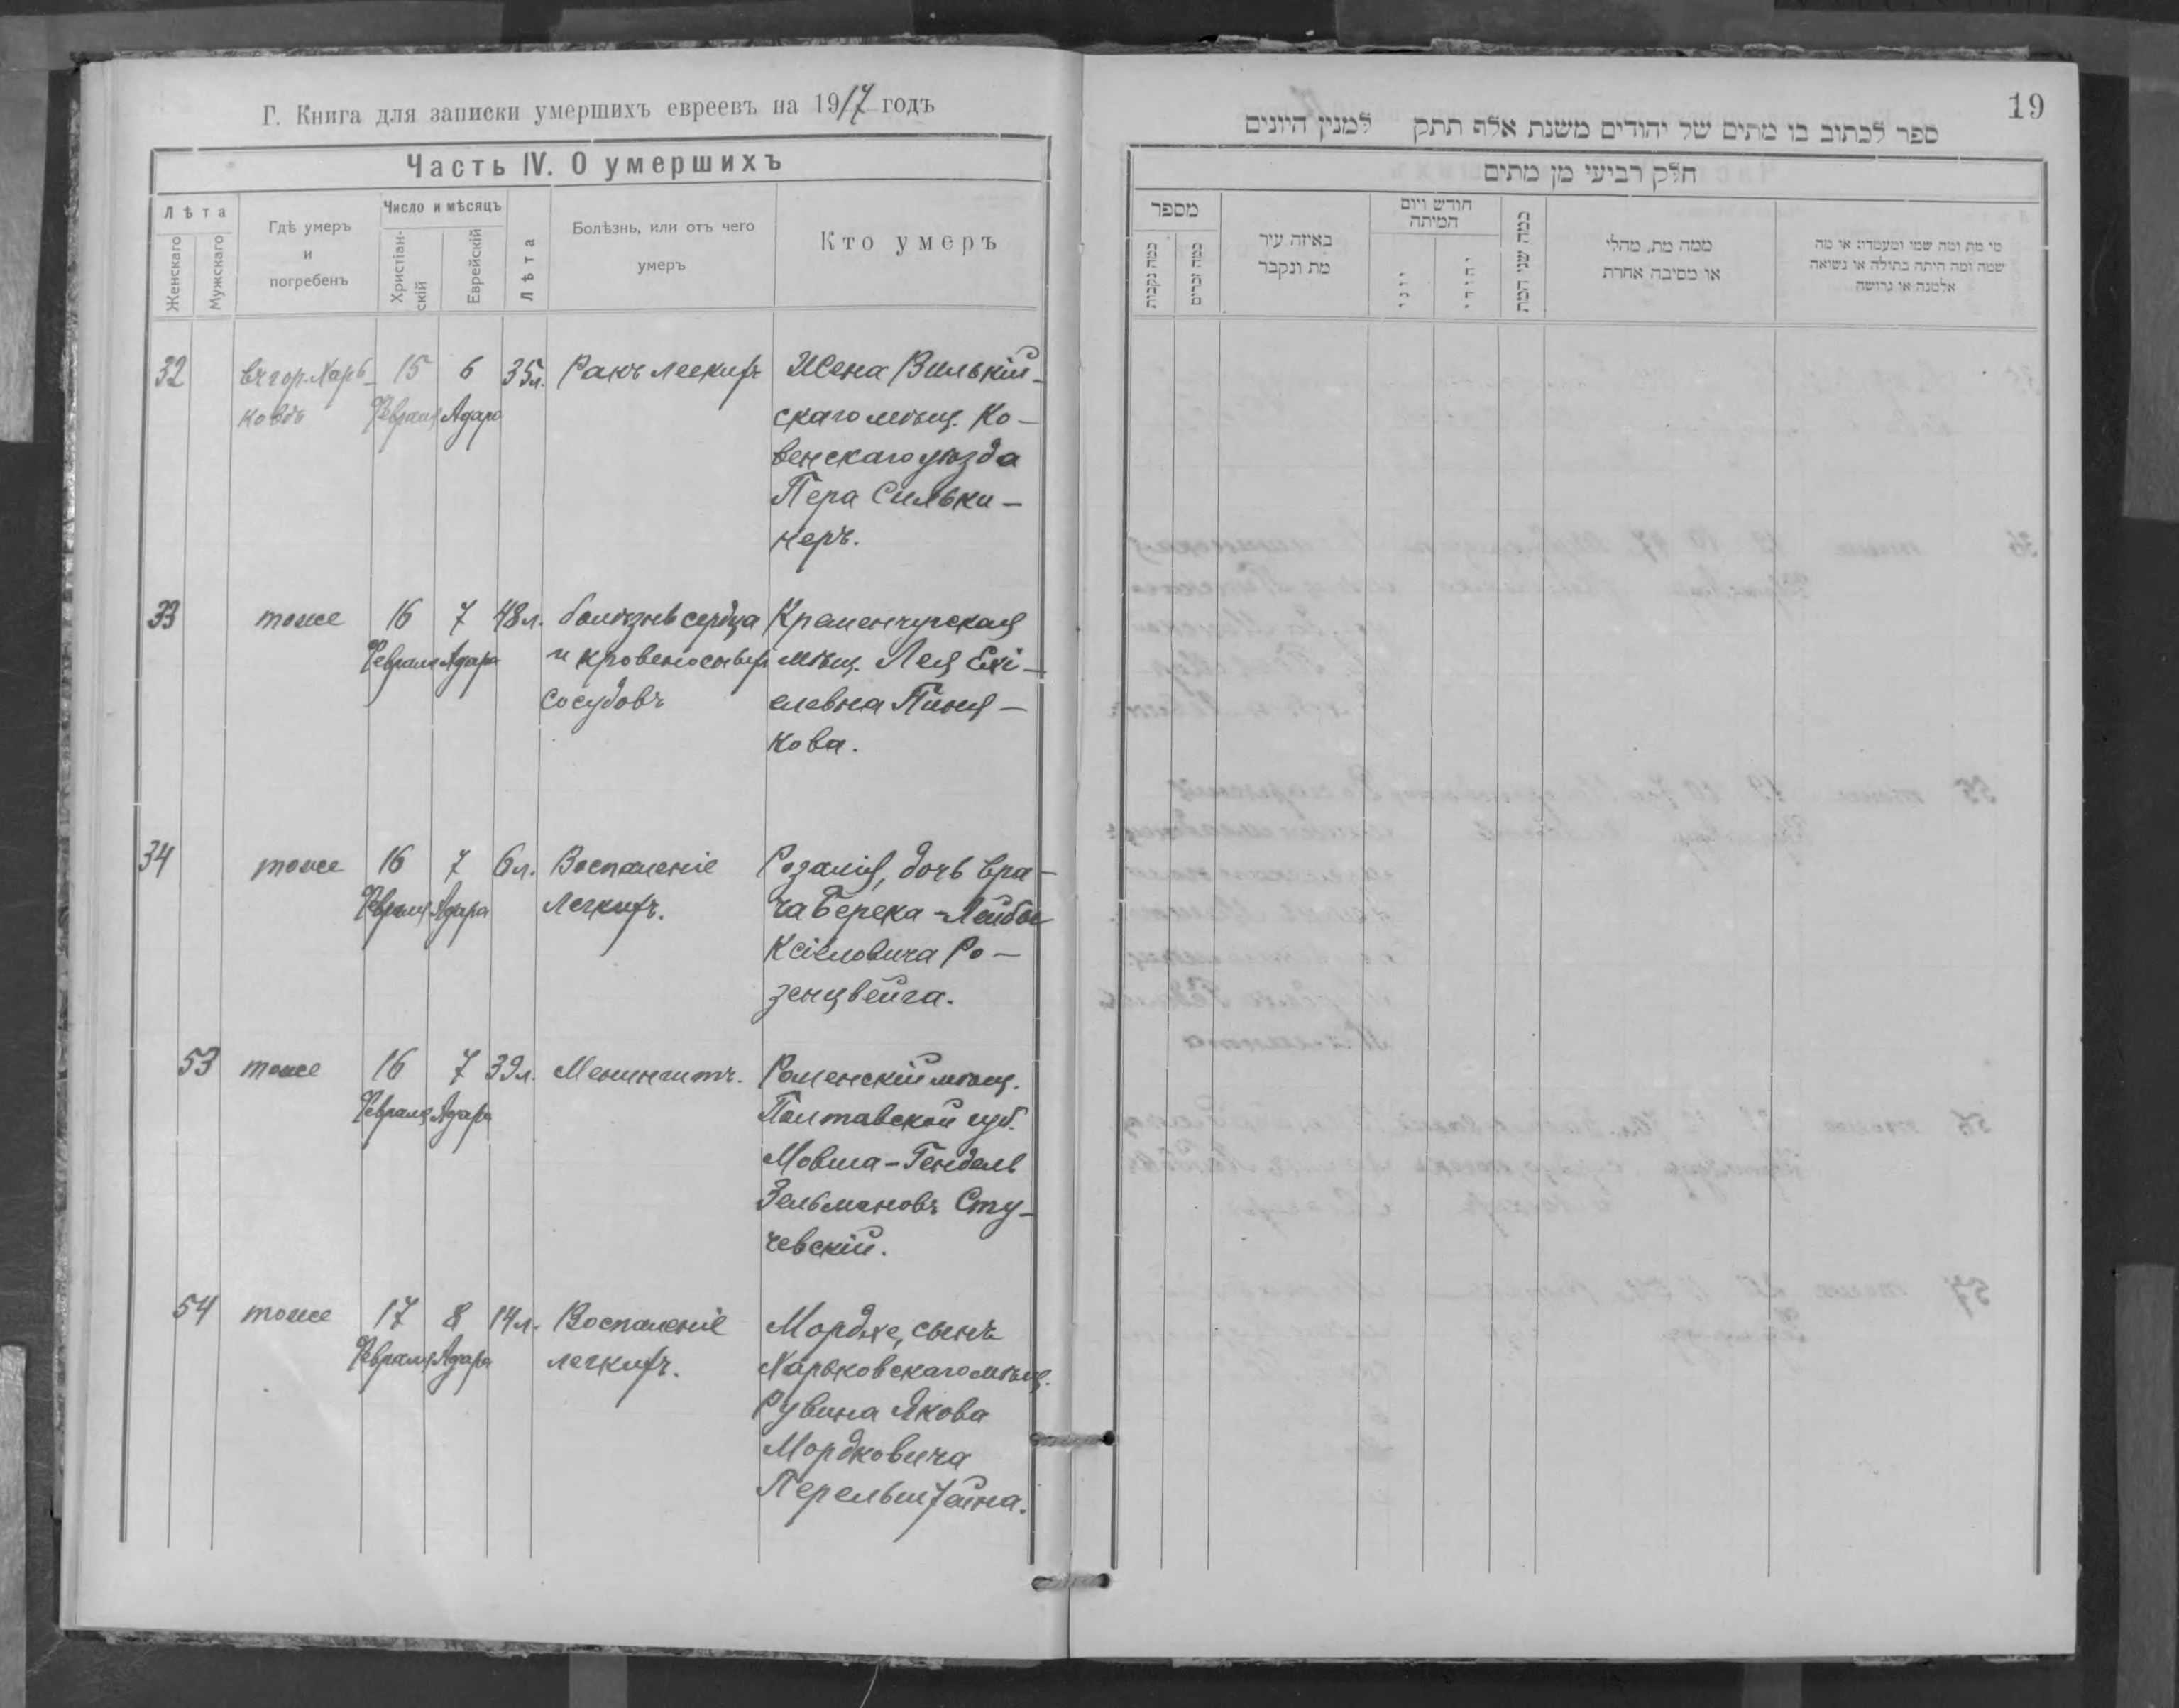 Г. Книга для записки умершихъ евреевъ на 1917 годъ
Часть IV. О умершихъ
Лѣта
Женскаго
Мужскаго
Гдѣ умеръ
и
погребенъ
Число и мѣсяцъ
Христіан-
скій
Еврейскій
Лѣта
Болѣзнь, или отъ чего
умеръ
Кто умеръ
32 въ гор. Харь- 15 6 35 л. Ракъ легкихъ Жена Вилькій-
ковѣ Февраля Адара скаго мѣщ. Ко-
венскаго уѣзда
Пера Сильки-
неръ.
33 тоже 16 7 48 л. болѣзнь сердца Кременчугская
Февраля Адара и кровеносныхъ мѣщ. Лея Ехі-
сосудовъ елевна Пиня-
кова.
34 тоже 16 7 6 л. Воспаленіе Розалія, дочь вра-
Февраля Адара легкихъ. ча Берека-Лейбы
Розенцвейга.
53 тоже 16 7 39 л. Менингитъ. Роменскій мѣщ.
Февраля Адара Полтавской губ.
Мовша-Гендель
Зельмановъ Сту-
чевскій.
54 тоже 17 8 14 л. Воспаленіе Мордхе, сынъ
Февраля Адара легкихъ. Харьковскаго мѣщ.
Рувина Якова
Мордковича
Перельштейна.
19
ספר לכתוב בו מתים של יהודים משנת אלף תתק למנין היונים
חלק רביעי מן מתים
מספר
כמה נקבות
כמה זכרים
באיזה עיר
מת ונקבר
חודש ויום
המיתה
יוני
יהודי
כמה שני המת
ממה מת, מחלי
או מסיבה אחרת
מי מת ומה שמו ומעמדו או מה
שמה ומה היתה בתולה או נשואה
אלמנה או גרושה